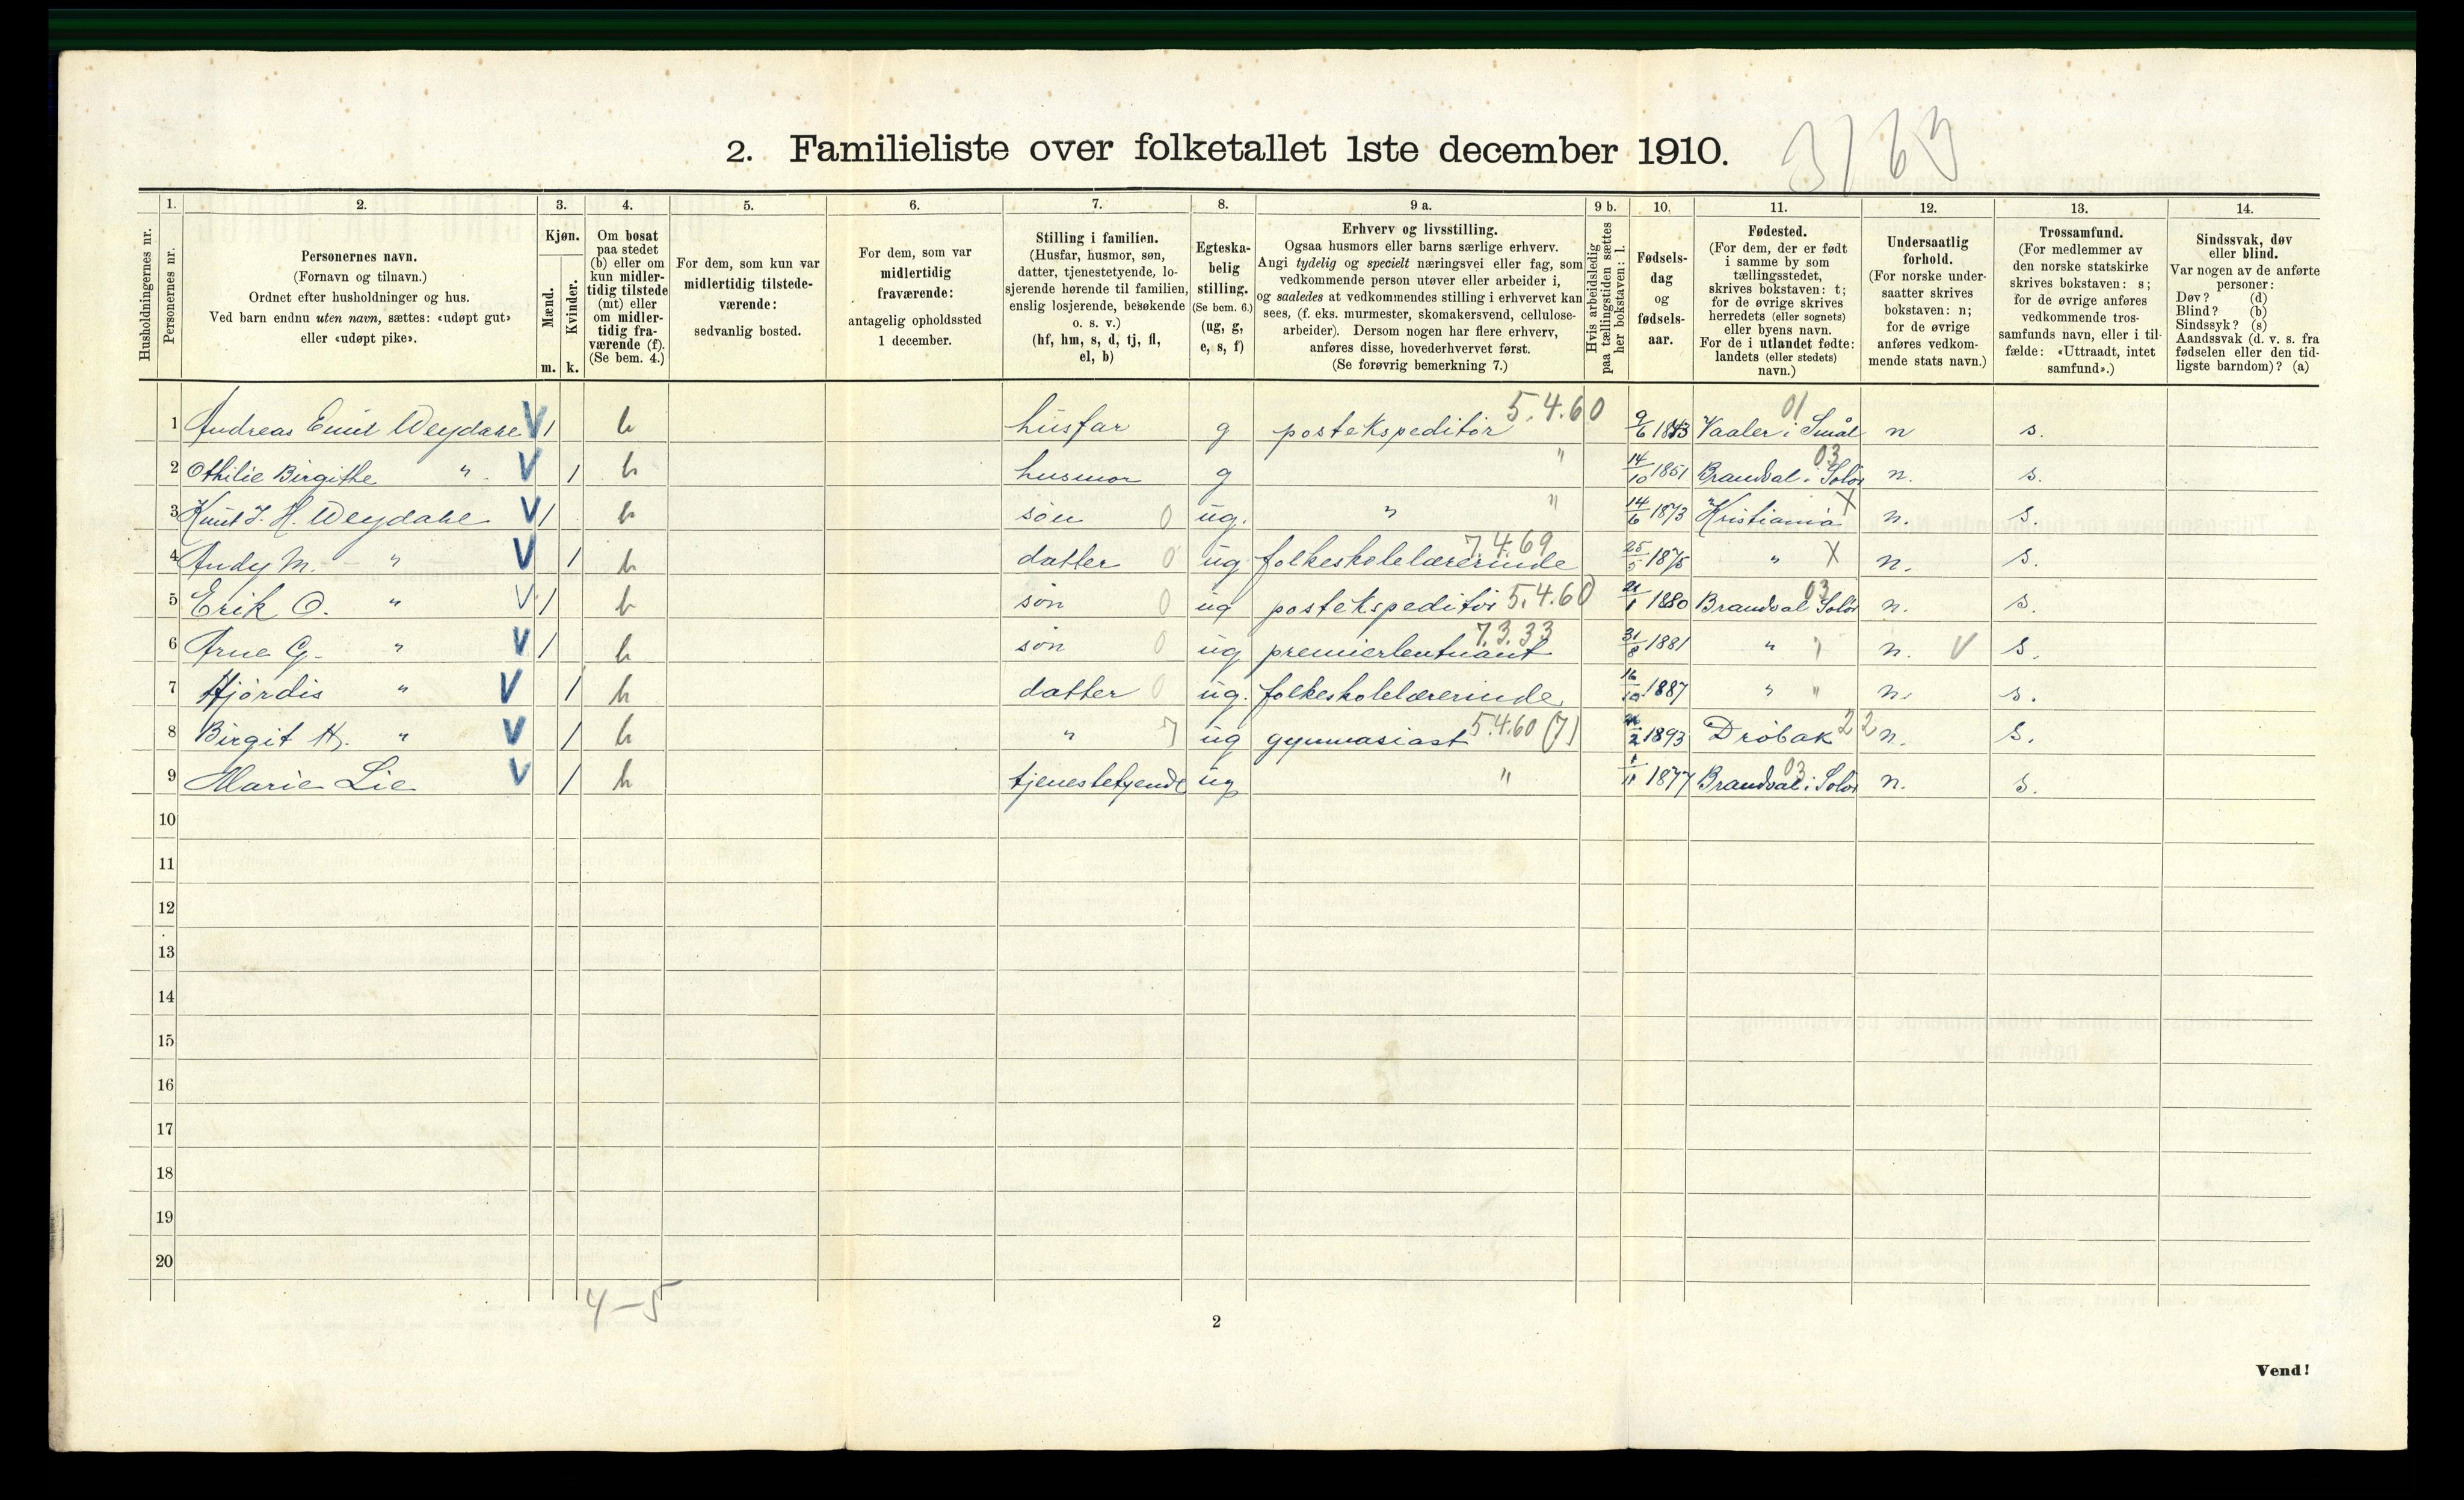 2. Familieliste over folketallet 1ste december 1910.
3163
Husholdningernes nr.
1. Personernes nr.
2. Personernes navn.
(Fornavn og tilnavn.)
Ordnet efter husholdninger og hus.
Ved barn endnu uten navn, sættes: «udøpt gut»
eller «udøpt pike».
3. Kjøn.
Mænd. m.
Kvinder. k.
4. Om bosat
paa stedet
(b) eller om
kun midler-
tidig tilstede
(mt) eller
om midler-
tidig fra-
værende (f).
(Se bem. 4.)
5. For dem, som kun var
midlertidig tilstede-
værende:
sedvanlig bosted.
6. For dem, som var
midlertidig
fraværende:
antagelig opholdssted
1 december.
7. Stilling i familien.
(Husfar, husmor, søn,
datter, tjenestetyende, lo-
sjerende hørende til familien,
enslig losjerende, besøkende
o. s. v.)
(hf, hm, s, d, tj, fl,
el, b)
8. Egteska-
belig
stilling.
(Se bem. 6.)
(ug, g,
e, s, f)
9 a. Erhverv og livsstilling.
Ogsaa husmors eller barns særlige erhverv.
Angi tydelig og specielt næringsvei eller fag, som
vedkommende person utøver eller arbeider i,
og saaledes at vedkommendes stilling i erhvervet kan
sees, (f. eks. murmester, skomakersvend, cellulose-
arbeider). Dersom nogen har flere erhverv,
anføres disse, hovederhvervet først.
(Se forøvrig bemerkning 7.)
9 b. Hvis arbeidsledig
paa tællingstiden sættes
her bokstaven: l.
10. Fødsels-
dag
og
fødsels-
aar.
11. Fødested.
(For dem, der er født
i samme by som
tællingsstedet,
skrives bokstaven: t;
for de øvrige skrives
herredets (eller sognets)
eller byens navn.
For de i utlandet fødte:
landets (eller stedets)
navn.)
12. Undersaatlig
forhold.
(For norske under-
saatter skrives
bokstaven: n;
for de øvrige
anføres vedkom-
mende stats navn.)
13. Trossamfund.
(For medlemmer av
den norske statskirke
skrives bokstaven: s;
for de øvrige anføres
vedkommende tros-
samfunds navn, eller i til-
fælde: «Uttraadt, intet
samfund».)
14. Sindssvak, døv
eller blind.
Var nogen av de anførte
personer:
Døv? (d)
Blind? (b)
Sindssyk? (s)
Aandssvak (d. v. s. fra
fødselen eller den tid-
ligste barndom)? (a)
1 Andreas Emil Weydahl V 1 b husfar g postekspeditør 5.4.60 9/6 1843 Vaaler i Smål 01 n s.
2 Othilie Birgithe " V 1 b husmor g " 14/10 1851 Brandval i Solør 03 n. s.
3 Knut J. H. Weydahl V 1 b søn 0 ug. " " 14/6 1873 Kristiania X n. s.
4 Andy M. " V 1 b datter 0 ug. folkeskolelærerinde 7.4.69 25/5 1875 " X n. s.
5 Erik O. " V 1 b søn 0 ug postekspeditør 5.4.60 1880 Brandval Solør 03 n. s.
6 Arne G. " V 1 b søn 0 ug premierleutnant 7.3.33 31/8 1881 " " n. V s.
7 Hjördis " V 1 b datter 0 ug. folkeskolelærerinde 16/10 1887 " " n. s.
8 Birgit H. " V 1 b " 7 ug gymnasiast 5.4.60 (7) 1893 Drøbak 22 n. s.
9 Marie Lie V 1 b tjenestetyende ug " 1/11 1877 Brandval i Solør 03 n. s.
10
11
12
13
14
15
16
17
18
19
20
4-5
2
Vend!